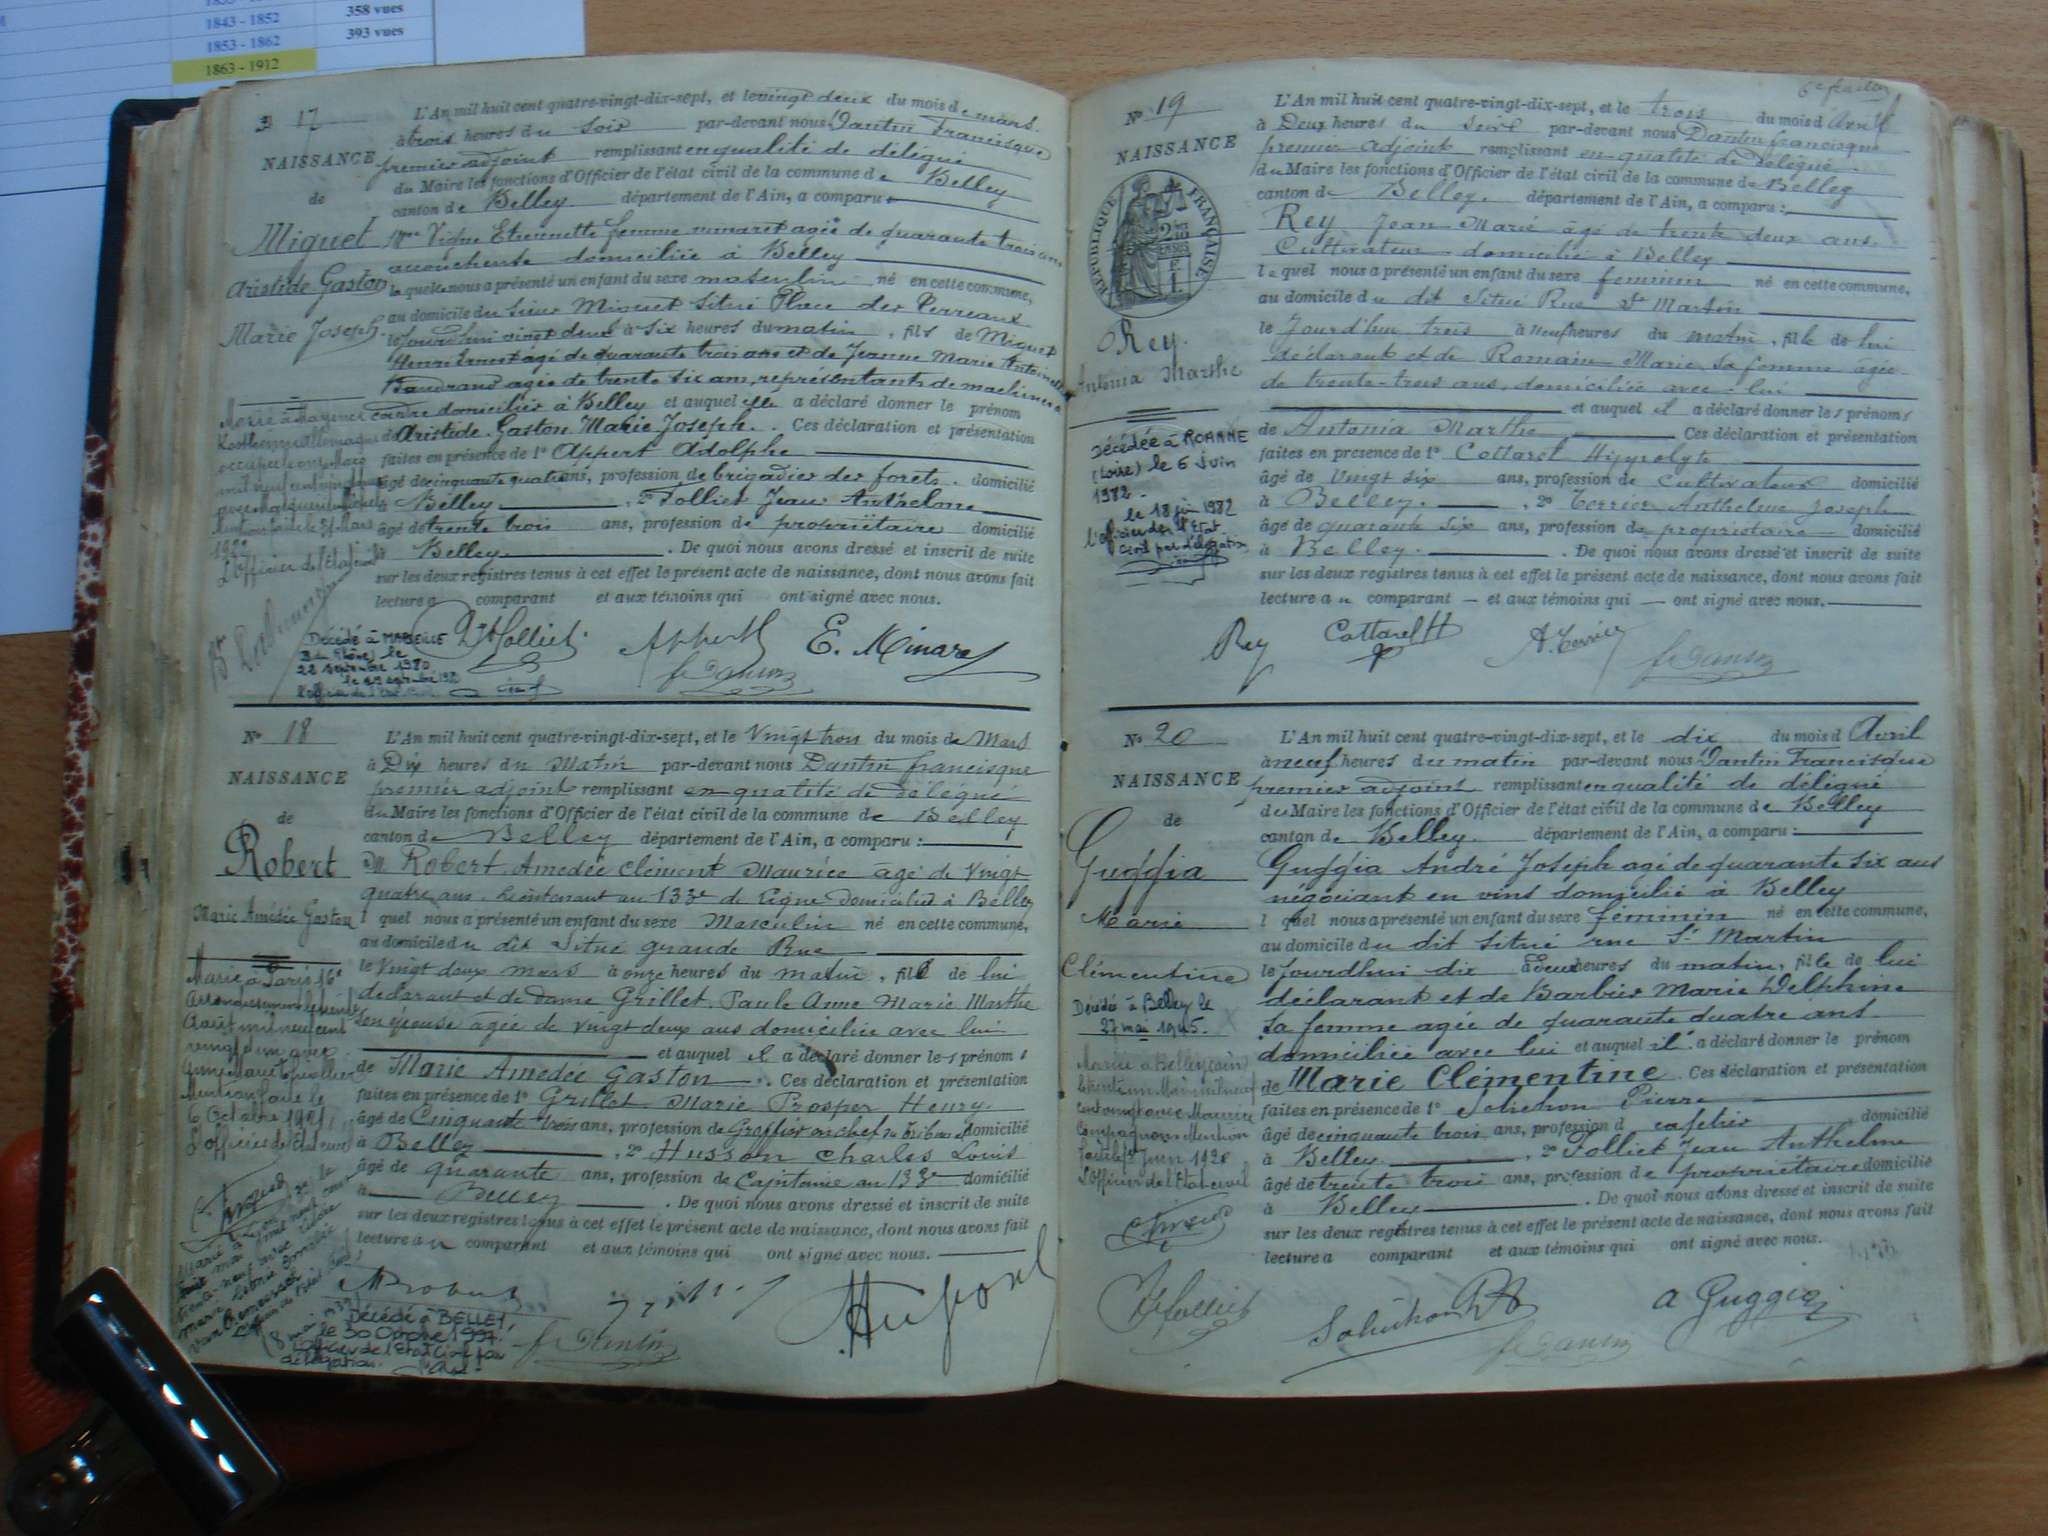 1843 - 1852 358 vues
1853 - 1862 393 vues
1863 - 1912
17
NAISSANCE
de
Miguet
Aristide Gaston
Marie Joseph
L'An mil huit cent quatre-vingt-dix-sept, et le vingt deux du mois de mars
à trois heures du soir par-devant nous Dantin Francisque
premier adjoint remplissant en qualité de délégué
du Maire les fonctions d'Officier de l'état civil de la commune de Belley
canton de Belley département de l'Ain, a comparu :
Vigne Etiennette femme agée de quarante trois ans
accoucheuse domiciliée à Belley
laquelle nous a présenté un enfant du sexe masculin né en cette commune,
au domicile du sieur Miguet situé Place des Terreaux
le jourdhui vingt deux à six heures du matin, fils de Miguet
Henri Ernest agé de quarante trois ans et de Jeanne Marie Antoinette
Baudrand agée de trente six ans, représentants de machines à
coudre domiciliés à Belley et auquel elle a déclaré donner le prénom
de Aristide Gaston Marie Joseph. Ces déclaration et présentation
faites en présence de 1° Appert Adolphe
âgé de cinquante quatre ans, profession de brigadier des forets domicilié
à Belley, 2° Folliet Jean Anthelme
âgé de trente trois ans, profession de propriétaire domicilié
à Belley. De quoi nous avons dressé et inscrit de suite
sur les deux registres tenus à cet effet le présent acte de naissance, dont nous avons fait
lecture a comparant et aux témoins qui ont signé avec nous.
Marié à Mayence
1922
L'Officier de l'état civil
Décédé à MARSEILLE
B. du Rhône) le
22 septembre 1980
Jn Folliet Appert E. Minard
fr Dantin
No 18
NAISSANCE
de
Robert
Marie Amédée Gaston
L'An mil huit cent quatre-vingt-dix-sept, et le Vingt trois du mois de Mars
à Dix heures du Matin par-devant nous Dantin francisque
premier adjoint remplissant en qualité de délégué
du Maire les fonctions d'Officier de l'état civil de la commune de Belley
canton de Belley département de l'Ain, a comparu :
M. Robert Amedée Clément Maurice agé de Vingt
quatre ans. Lieutenant au 133e de Ligne Domicilié à Belley
l quel nous a présenté un enfant du sexe Masculin né en cette commune,
au domicile du dit Situé grande Rue
le Vingt deux mars à onze heures du matin, fils de lui
declarant et de Dame Grillet Paule Anne Marie Marthe
son épouse agée de vingt deux ans domiciliée avec lui
et auquel il a déclaré donner les prénoms
de Marie Amedée Gaston. Ces déclaration et présentation
faites en présence de 1° Grillet Marie Prosper Henry
âgé de Cinquante trois ans, profession de Greffier en chef du tribunal domicilié
à Belley, 2° Husson Charles Louis
âgé de quarante ans, profession de Capitaine au 133e domicilié
à Belley. De quoi nous avons dressé et inscrit de suite
sur les deux registres tenus à cet effet le présent acte de naissance, dont nous avons fait
lecture au comparant et aux témoins qui ont signé avec nous.
Marié à Paris 16e
Arrondissement le trente
Aout mil neuf cent
vingt et un avec
Mention faite le
6 Octobre 1921
L'officier de l'Etat civil
Décédé à BELLEY,
le 30 Octobre 1997.
L'Officier de l'Etat Civil par
délégation.
Husson
fr Dantin
No 19
NAISSANCE
RÉPUBLIQUE FRANÇAISE
Rey.
Antonia Marthe
L'An mil huit cent quatre-vingt-dix-sept, et le trois du mois d'Avril
à Deux heures du soir par-devant nous Dantin francisque
premier adjoint remplissant en qualité de délégué
du Maire les fonctions d'Officier de l'état civil de la commune de Belley
canton de Belley. département de l'Ain, a comparu :
Rey Jean Marie âgé de trente deux ans
Cultivateur domicilié à Belley
lequel nous a présenté un enfant du sexe feminin né en cette commune,
au domicile du dit Situé Rue St Martin
le Jourd'hui trois à neuf heures du matin, fille de lui
déclarant et de Romain Marie sa femme agée
de trente-trois ans, domiciliée avec lui
et auquel il a déclaré donner les prénoms
de Antonia Marthe Ces déclaration et présentation
faites en présence de 1° Cottarel Hyppolyte
âgé de Vingt six ans, profession de Cultivateur domicilié
à Belley, 2° Terrier Anthelme Joseph
âgé de quarante six ans, profession de propriétaire domicilié
à Belley. De quoi nous avons dressé et inscrit de suite
sur les deux registres tenus à cet effet le présent acte de naissance, dont nous avons fait
lecture au comparant et aux témoins qui ont signé avec nous.
Décédée à ROANNE
(Loire) le 6 Juin
1982.
le 18 juin 1982
l'officier de l'Etat
civil par délégation
Rey Cottarel H A. Terrier
fr Dantin
No 20
NAISSANCE
de
Guggia
Marie
Clémentine
L'An mil huit cent quatre-vingt-dix-sept, et le dix du mois d Avril
à neuf heures du matin par-devant nous Dantin Francisque
premier adjoint remplissant en qualité de délégué
du Maire les fonctions d'Officier de l'état civil de la commune de Belley
canton de Belley. département de l'Ain, a comparu :
Guggia André Joseph agé de quarante six ans
négociant en vins domicilié à Belley
l quel nous a présenté un enfant du sexe féminin né en cette commune,
au domicile du dit situé rue St Martin
le jourdhui dix à deux heures du matin, fille de lui
déclarant et de Barbier Marie Delphine
sa femme agée de quarante quatre ans
domiciliée avec lui et auquel il a déclaré donner le prénom
de Marie Clémentine. Ces déclaration et présentation
faites en présence de 1° Solichon Pierre
âgé de cinquante trois ans, profession d cafetier domicilié
à Belley, 2° Folliet Jean Anthelme
âgé de trente trois ans, profession de propriétaire domicilié
à Belley. De quoi nous avons dressé et inscrit de suite
sur les deux registres tenus à cet effet le présent acte de naissance, dont nous avons fait
lecture a comparant et aux témoins qui ont signé avec nous.
Décédé à Belley le
27 mai 1945.
Mariée à Belley (Ain)
Maurice
Compagnon Mention
Juin 1920
L'Officier de l'Etat civil
Jn Folliet Solichon A Guggia
fr Dantin